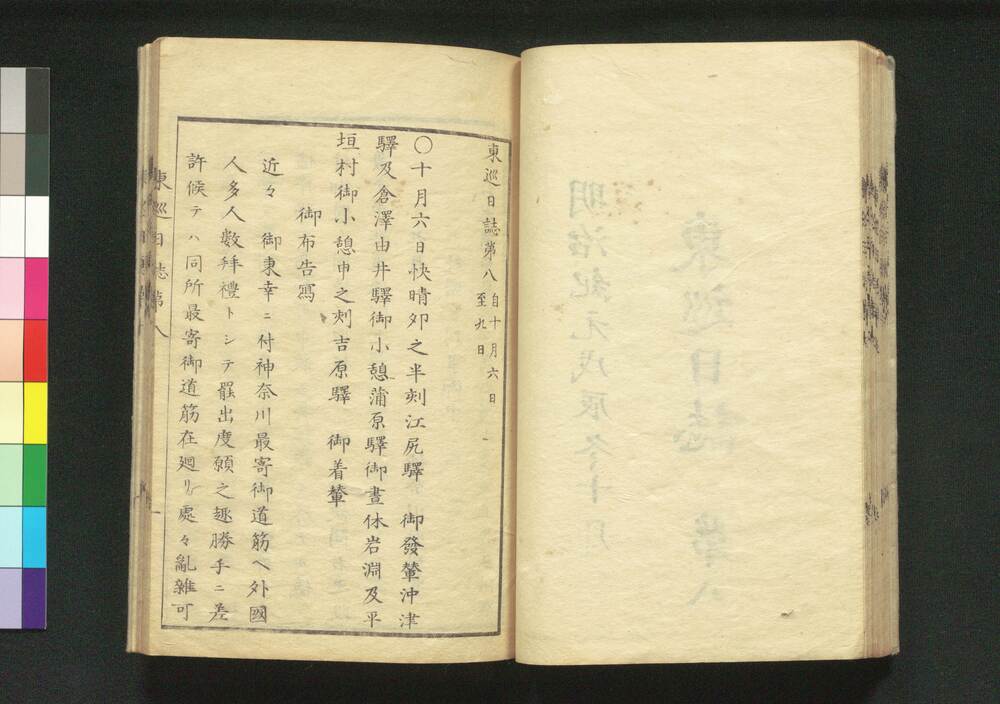 東巡日誌第八 自十月六日
至九日
○十月六日快晴夘之半刻江尻驛 御發輦沖津
驛及倉澤由井驛御小憩蒲原驛御晝休岩淵及平
垣村御小憩申之刻吉原驛 御着輦
御布告寫
近々 御東幸ニ付神奈川最寄御道筋ヘ外國
人多人數拜禮トシテ罷出度願之趣勝手ニ差
許候テハ同所最寄御道筋在廻リ處々亂雜可
東巡日誌第八